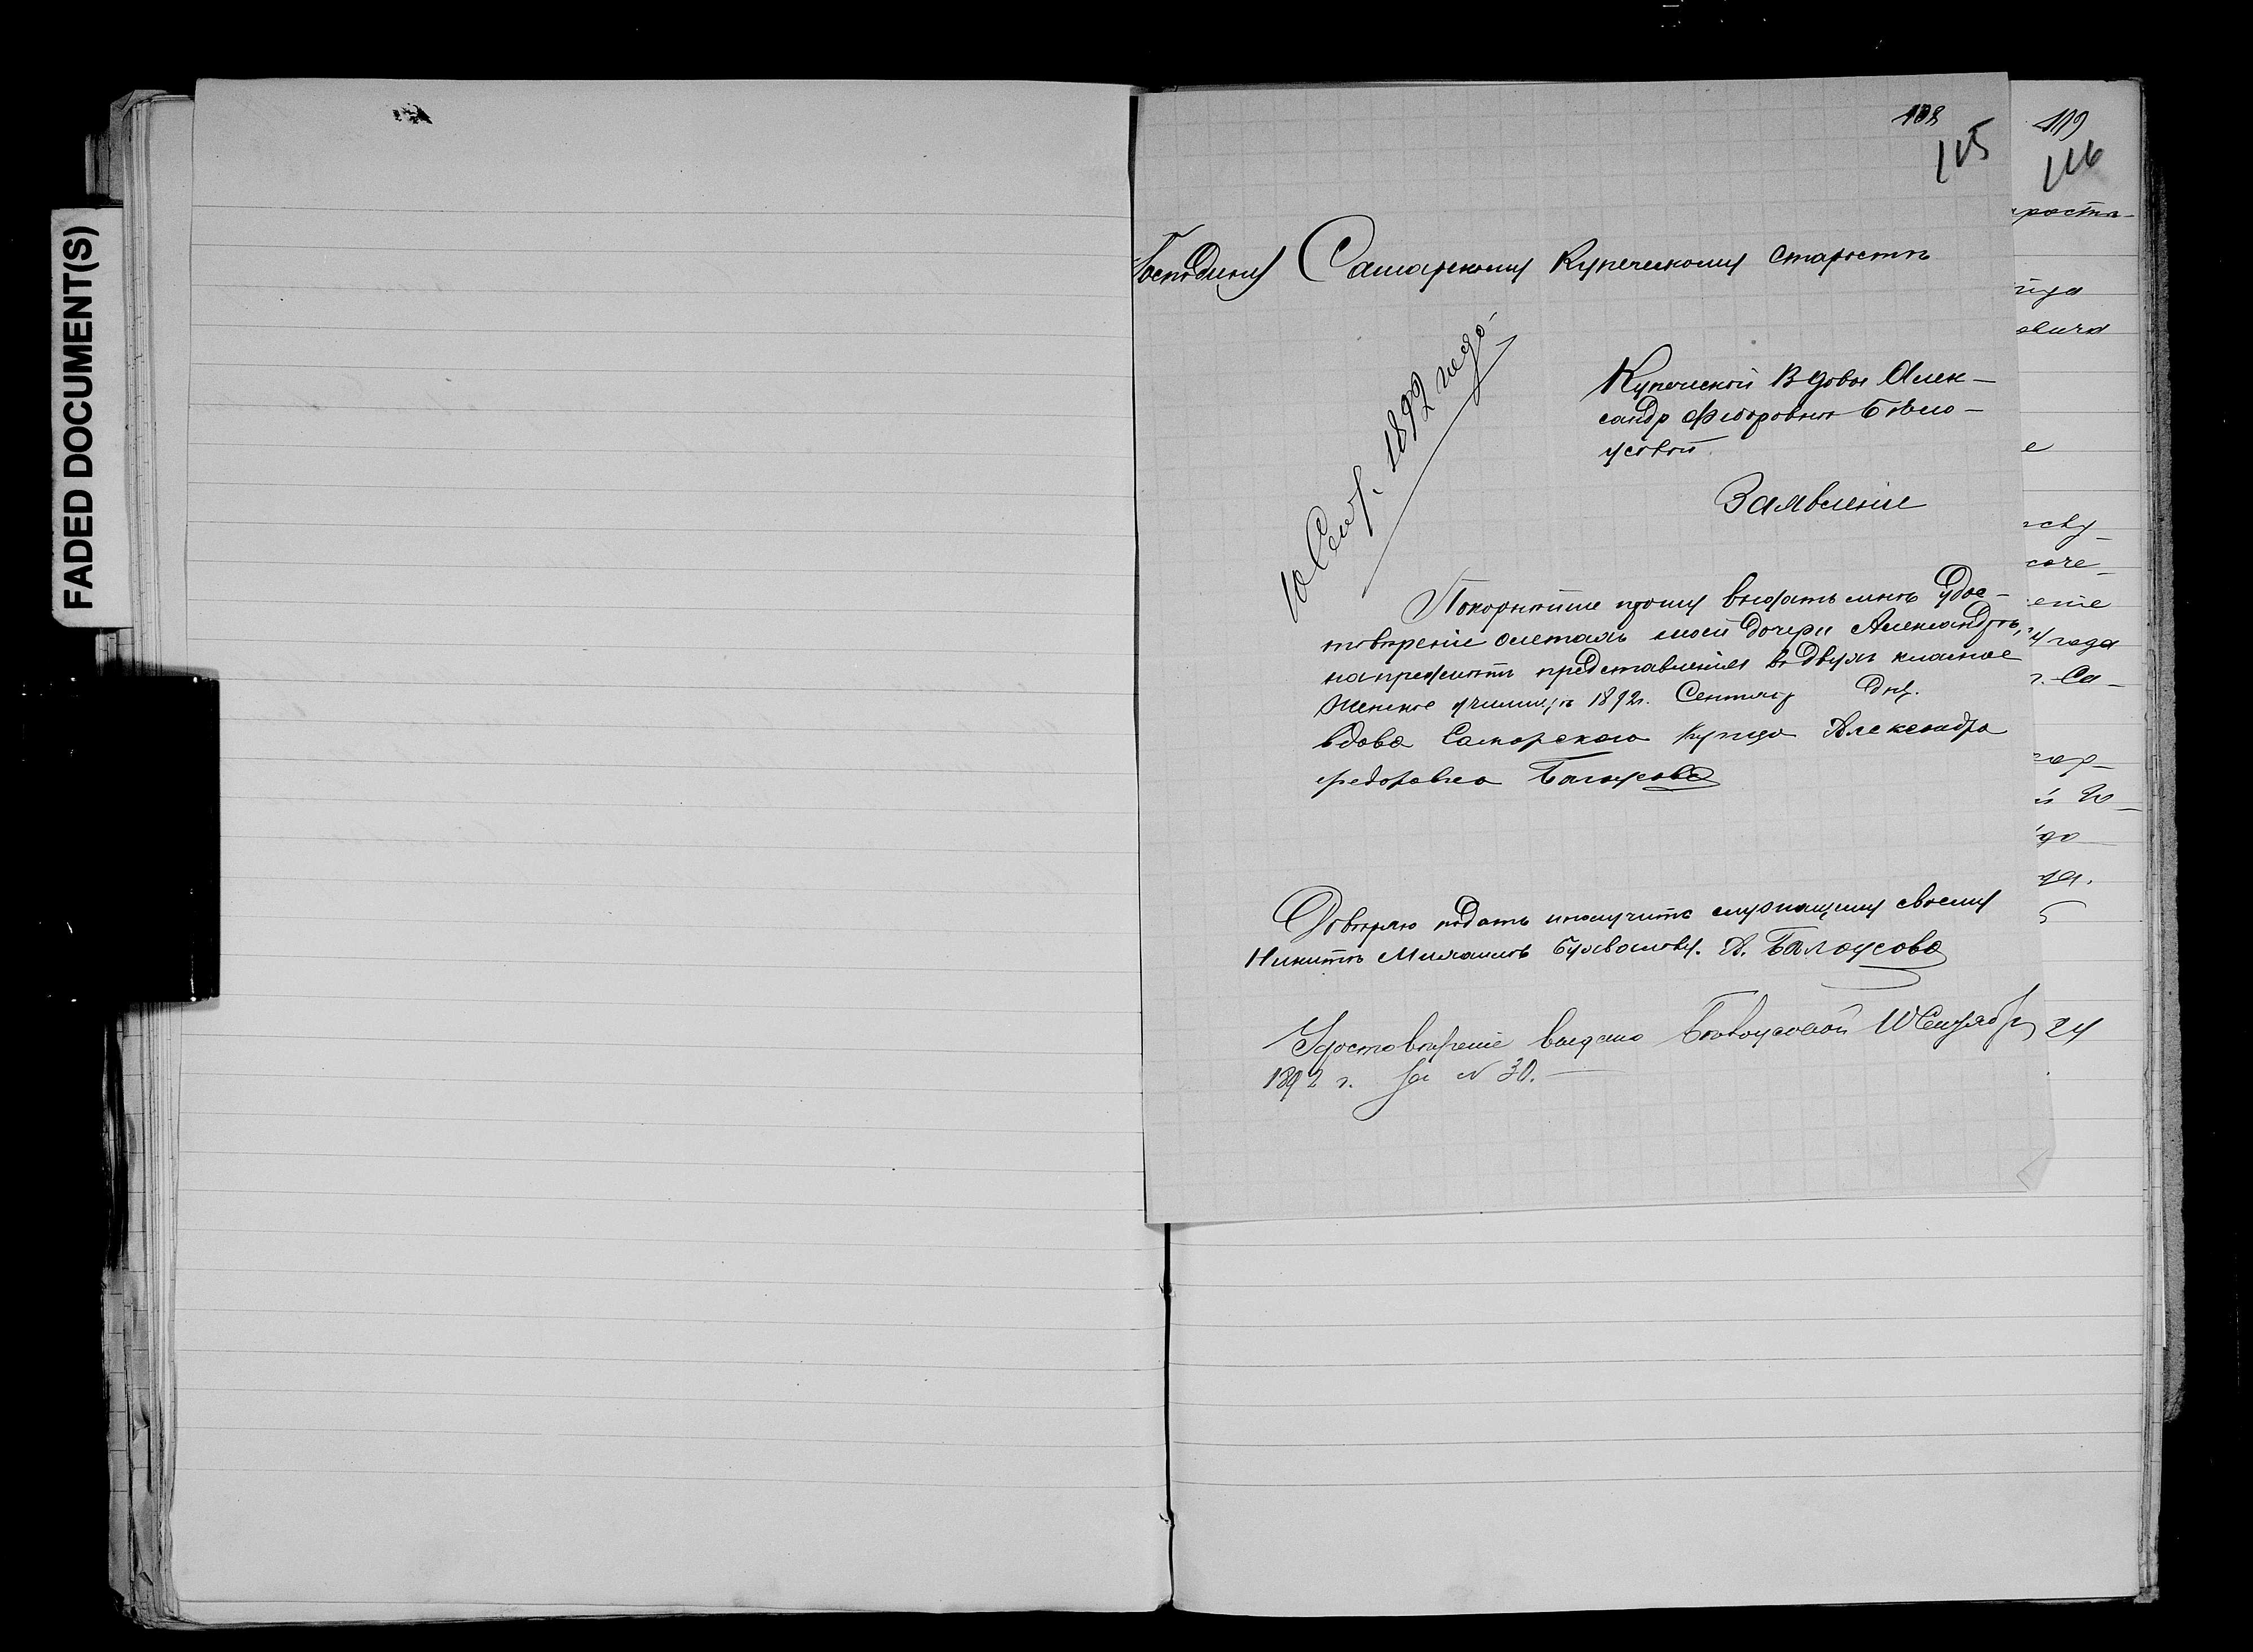 FADED DOCUMENT(S)
115
119
116
Господину Самарскому Купеческому старостѣ
10 Сент. 1892 года
Купеческой Вдовы Алек-
сандр Фиодровны Бѣло-
усовой
Заявленіе
Покорнѣйше прошу выдать мнѣ удос-
товѣреніе олетахъ моей дочери Александры,
на предметъ представленія въ двухъ класное
Женское училище 1892 г. Сентября дня.
вдова Самарскаго Купца Александра
Федоровна Балоусова
Довѣряю подать и получить служащему своему
Никитѣ Михайлов. А. Балоусова
Удостовѣреніе выдано Бѣлоусовой 10 Сентября
1892 г. за № 30.
роста-
ица
овича
е
соче-
года
г. Са-
24